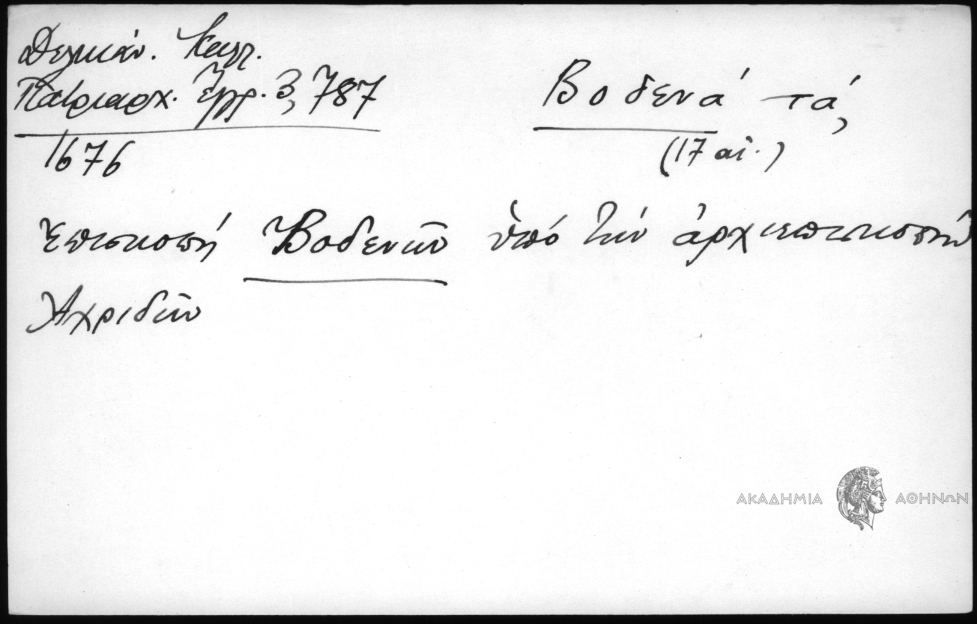 Δελικάν. Καλλ.
Πατριαρχ. Ἔγγρ. 3, 787
1676
Βοδενά τά,
(17 αἰ.)
Ἐπισκοπή Βοδενῶν ὑπό τήν ἀρχιεπισκοπήν
Ἀχριδῶν
ΑΚΑΔΗΜΙΑ ΑΘΗΝΩΝ